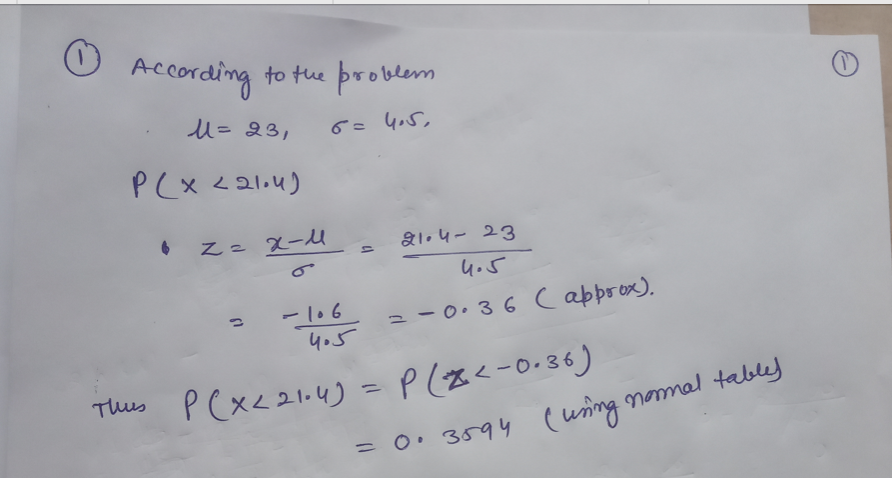 ① According to the problem ①
μ = 23, σ = 4.5,
P(x < 21.4)
• z = x-μ/σ = 21.4 - 23/4.5
= -1.6/4.5 = -0.36 (approx).
Thus P(x < 21.4) = P(z < -0.36)
= 0.3594 (using normal tables)